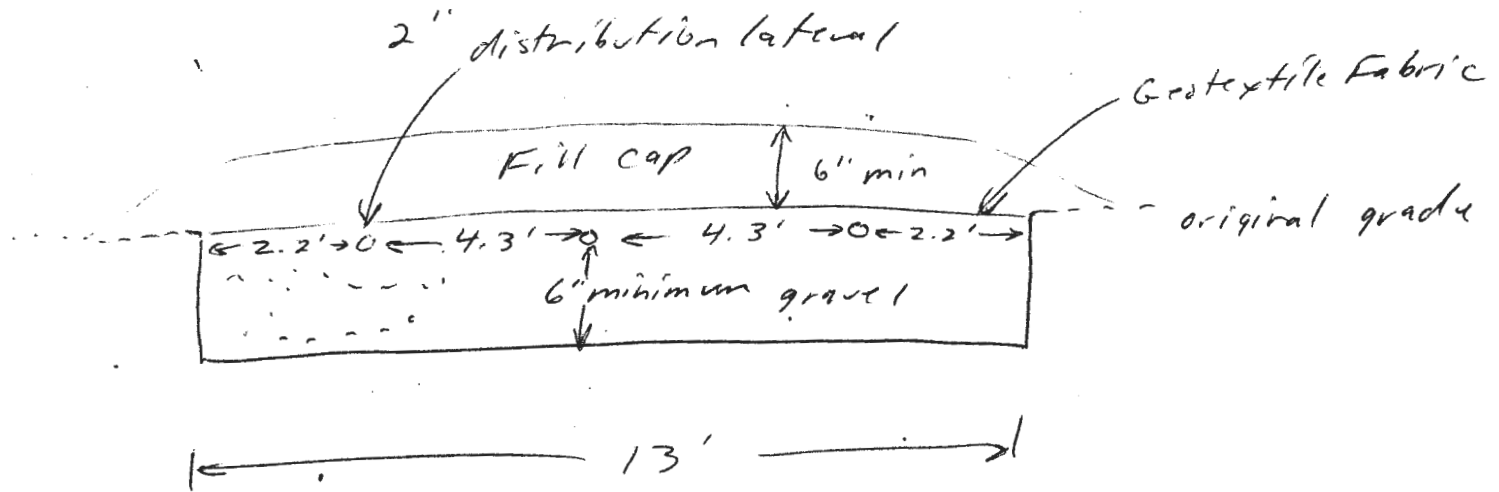 2" distribution lateral
Geotextile Fabric
Fill cap
6" min
original grade
2.2' 4.3' 4.3' 2.2'
6" minimum gravel
13'